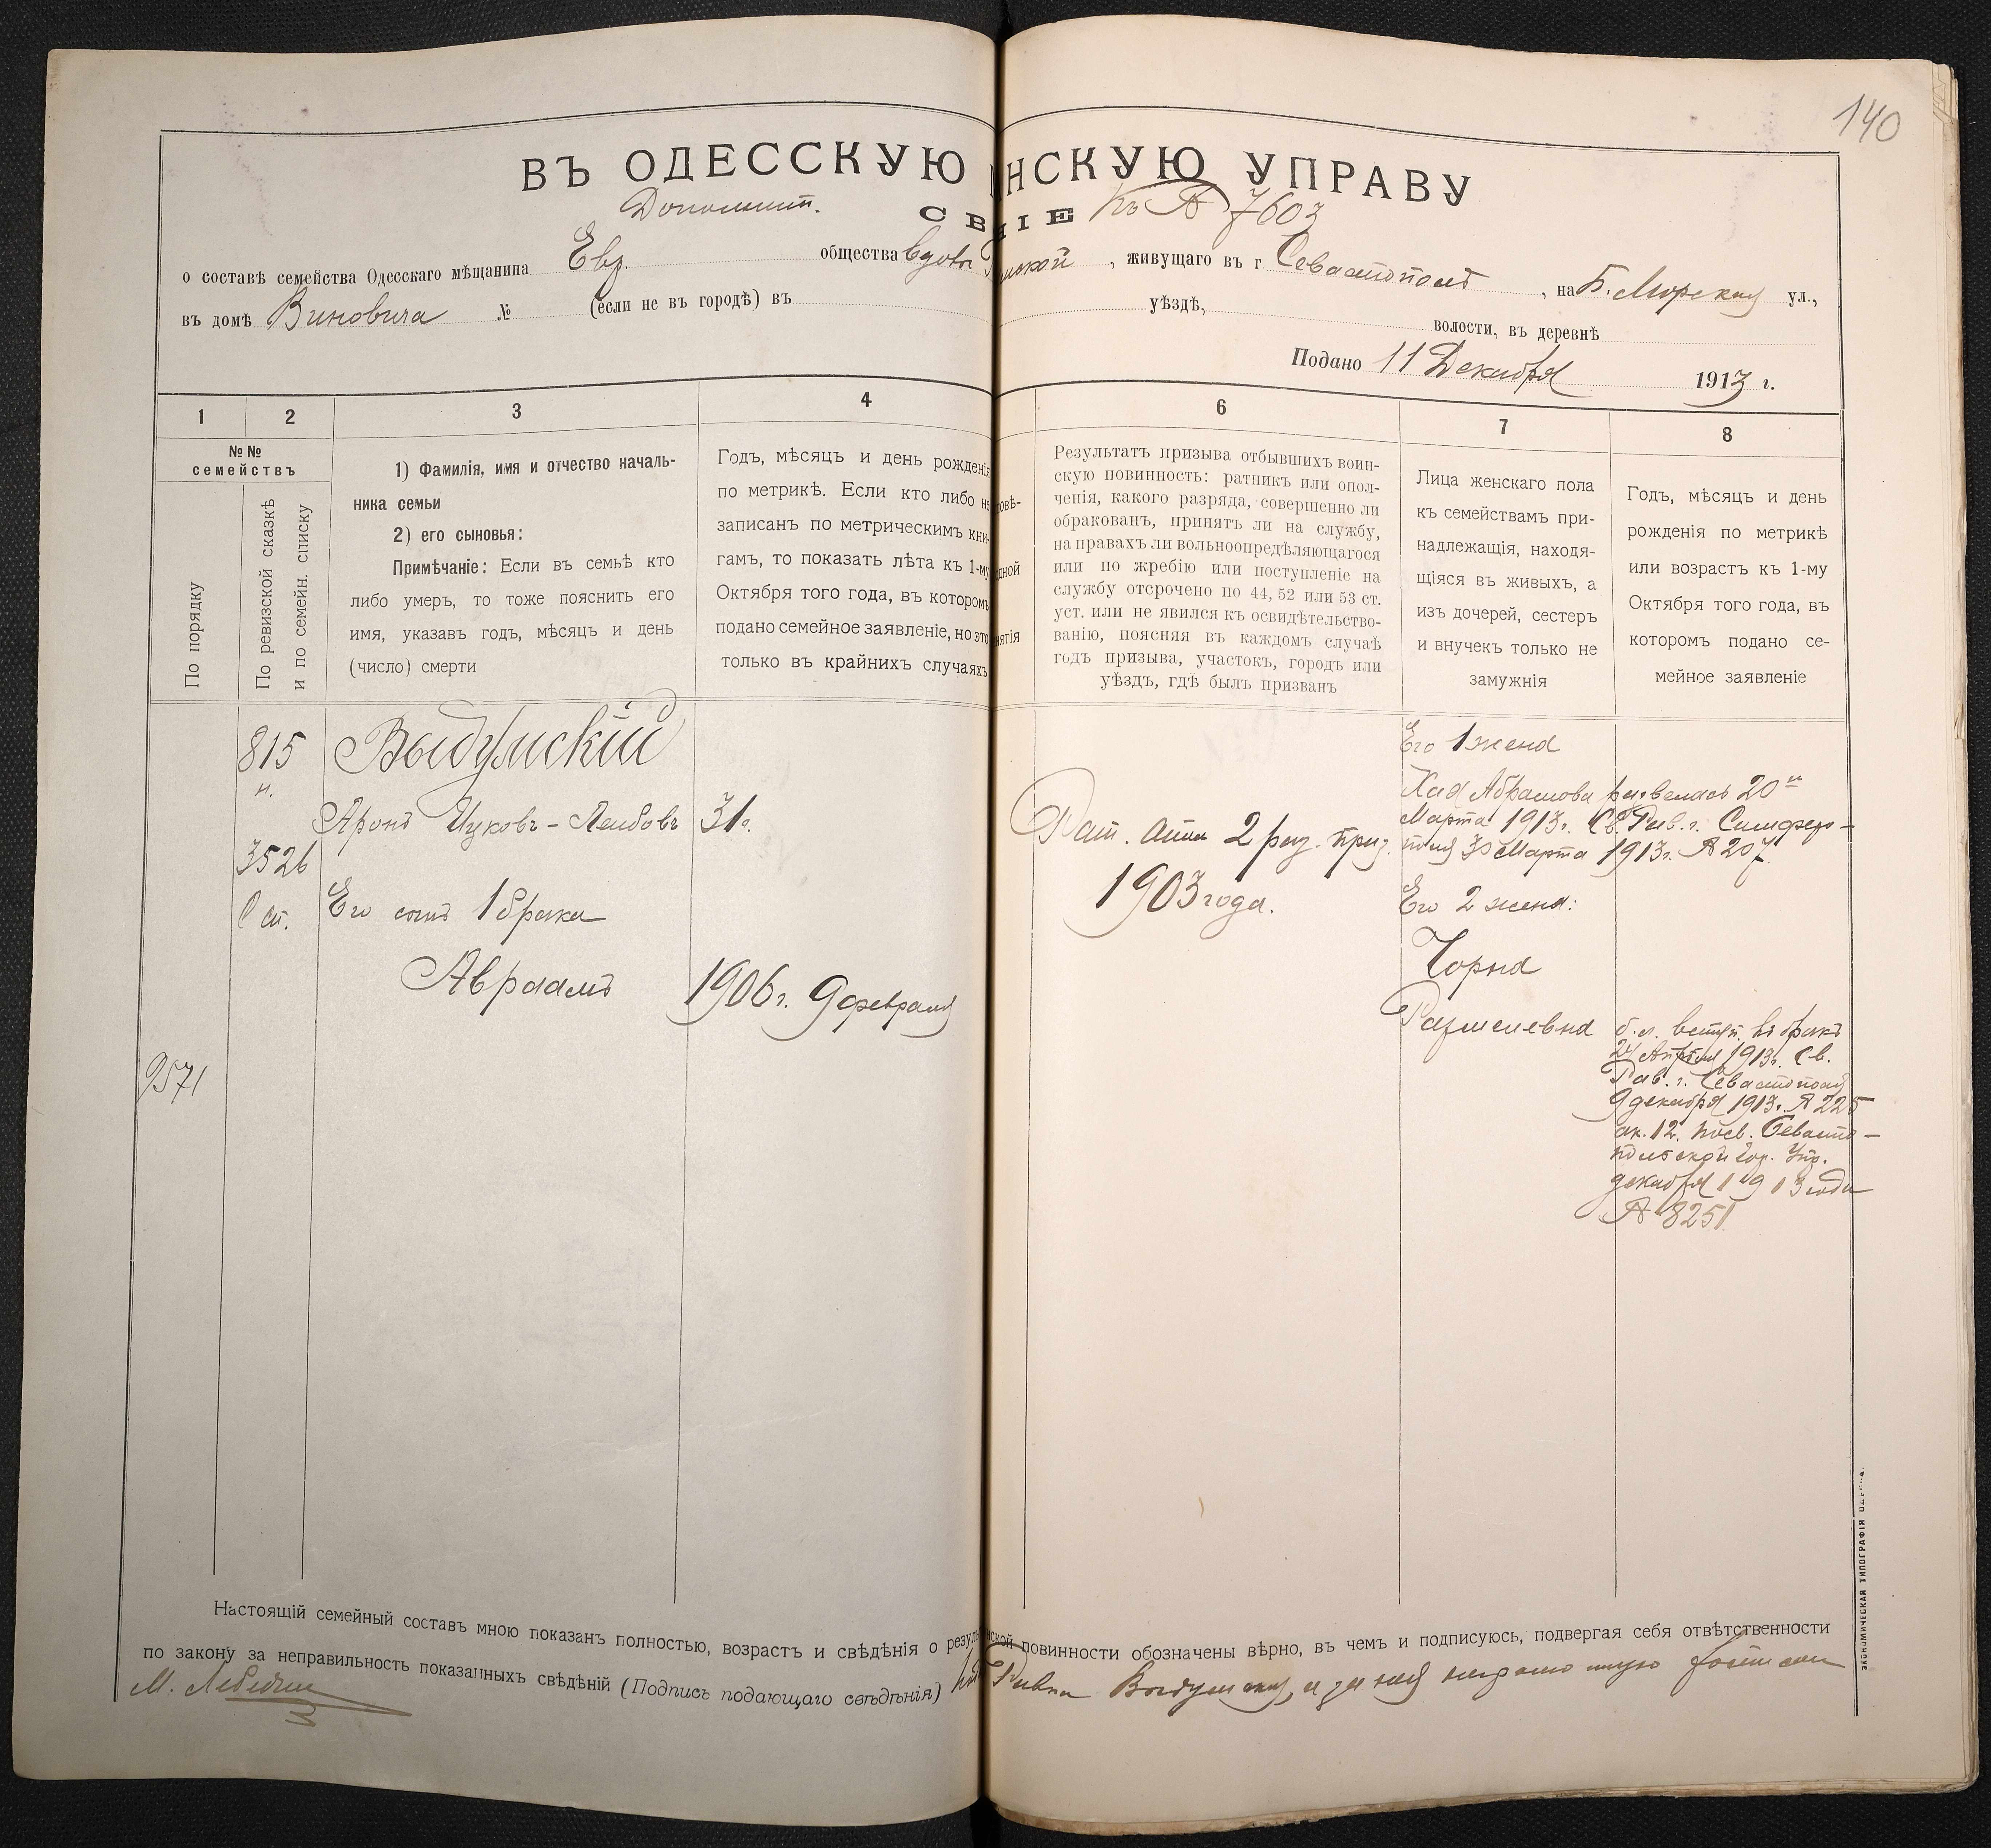 140
ВЪ ОДЕССКУЮ НСКУЮ УПРАВУ
Дополнит. СВ НІЕ къ № 7603
о составѣ семейства Одесскаго мѣщанина Евр. общества вдовы ской, живущаго въ г Севастополѣ, на Б. Морской ул.,
въ домѣ Виновича № (если не въ городѣ) въ уѣздѣ, волости, въ деревнѣ
Подано 11 Декабря 1913 г.
1 2 3 4 6 7 8
№№ семействъ
По порядку
По ревизской сказкѣ
и по семейн. списку
1) Фамилія, имя и отчество началь-
ника семьи
2) его сыновья:
Примѣчаніе: Если въ семьѣ кто
либо умеръ, то тоже пояснить его
имя, указавъ годъ, мѣсяцъ и день
(число) смерти
Годъ, мѣсяцъ и день рожденія
по метрикѣ. Если кто либо не
записанъ по метрическимъ кни-
гамъ, то показать лѣта къ 1-му
Октября того года, въ которомъ
подано семейное заявленіе, но это
только въ крайнихъ случаяхъ
овѣ-
дной
нятія
Результатъ призыва отбывшихъ воин-
скую повинность: ратникъ или опол-
ченія, какого разряда, совершенно ли
обракованъ, принятъ ли на службу,
на правахъ ли вольноопредѣляющагося
или по жребію или поступленіе на
службу отсрочено по 44, 52 или 53 ст.
уст. или не явился къ освидѣтельство-
ванію, поясняя въ каждомъ случаѣ
годъ призыва, участокъ, городъ или
уѣздъ, гдѣ былъ призванъ
Лица женскаго пола
къ семействамъ при-
надлежащія, находя-
щіяся въ живыхъ, а
изъ дочерей, сестеръ
и внучекъ только не
замужнія
Годъ, мѣсяцъ и день
рожденія по метрикѣ
или возрастъ къ 1-му
Октября того года, въ
которомъ подано се-
мейное заявленіе
815
н.
3526
Выдумскій
Аронъ Ицковъ-Лейбовъ 31г.
Его сынъ 1 брака
Авраамъ 1906 г. 9 февраля
9571
Рат. 2 раз. приз.
1903 года.
Его 1 жена
Хая Абрамова развелась 20
Марта 1913 г. Св. Рав. г. Симферо-
поля 30 Марта 1913 г. № 207.
Его 2 жена:
Чорна
вступ. въ бракъ
24 Апрѣля 1913 г. Св.
Рав. г. Севастополя
9 декабря 1913 г. № 225
ак. 12. Севасто-
польской Гор. Упр.
декабря 1913 года
№ 8251
Настоящій семейный составъ мною показанъ полностью, возрастъ и свѣдѣнія о резуль нской повинности обозначены вѣрно, въ чемъ и подписуюсь, подвергая себя отвѣтственности
по закону за неправильность показанныхъ свѣдѣній (Подпись подающаго свѣдѣнія) Ривка Выдумская, а за нея неграмотную
ЭКОНОМИЧЕСКАЯ ТИПОГРАФІЯ